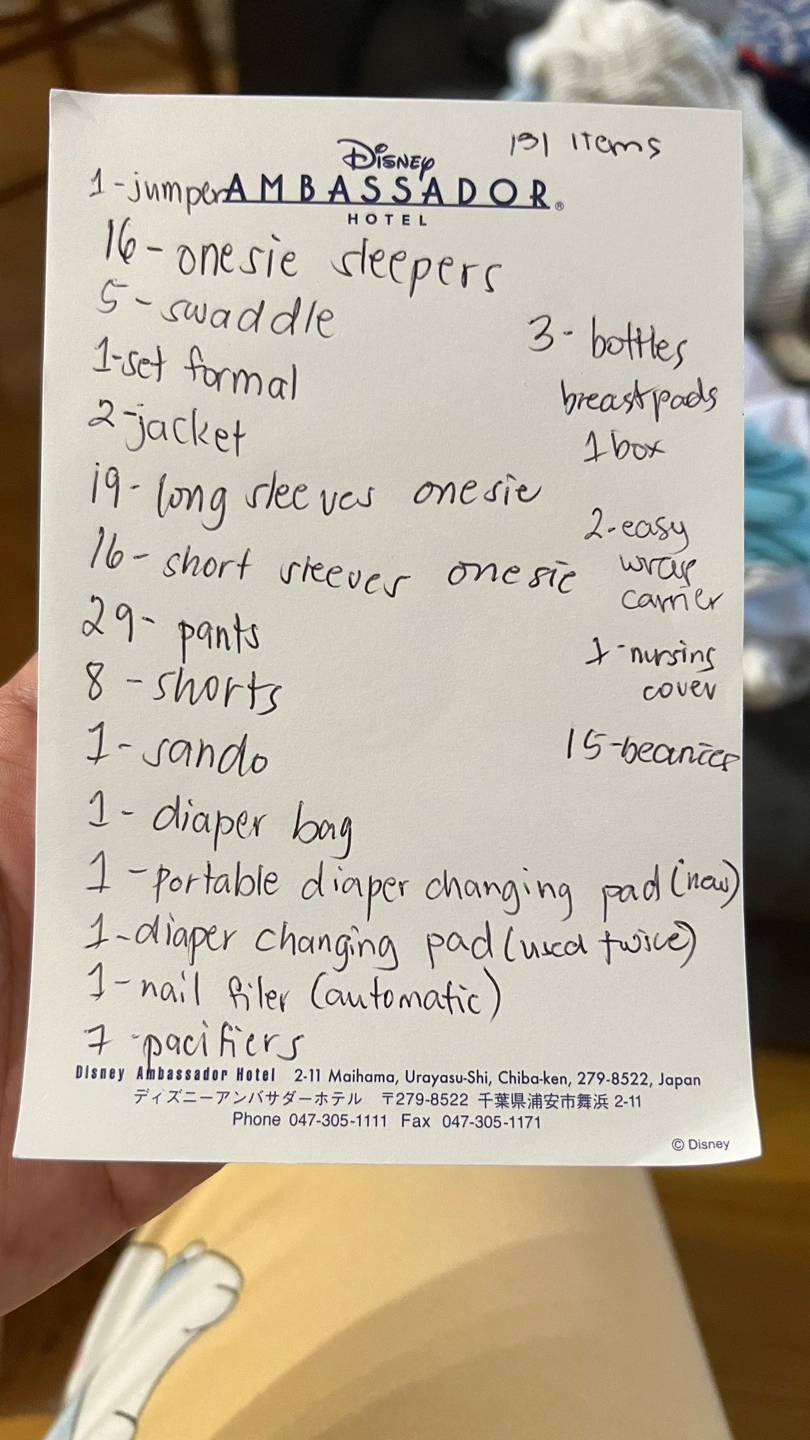 131 Items
Disney
1-jumper AMBASSADOR®
HOTEL
16- onesie sleepers
5- swaddle
1-set formal
2-jacket
19- long sleeves onesie
16- short sleeves onesie
29- pants
8 -shorts
1- sando
1- diaper bag
1 -portable diaper changing pad (new)
1-diaper changing pad (used twice)
1-nail filer (automatic)
7 -pacifiers
3- bottles
breastpads
1 box
2-easy
wrap
carrier
1-nursing
cover
15-beanies
Disney Ambassador Hotel 2-11 Maihama, Urayasu-Shi, Chiba-ken, 279-8522, Japan
ディズニーアンバサダーホテル 〒279-8522 千葉県浦安市舞浜 2-11
Phone 047-305-1111 Fax 047-305-1171
© Disney